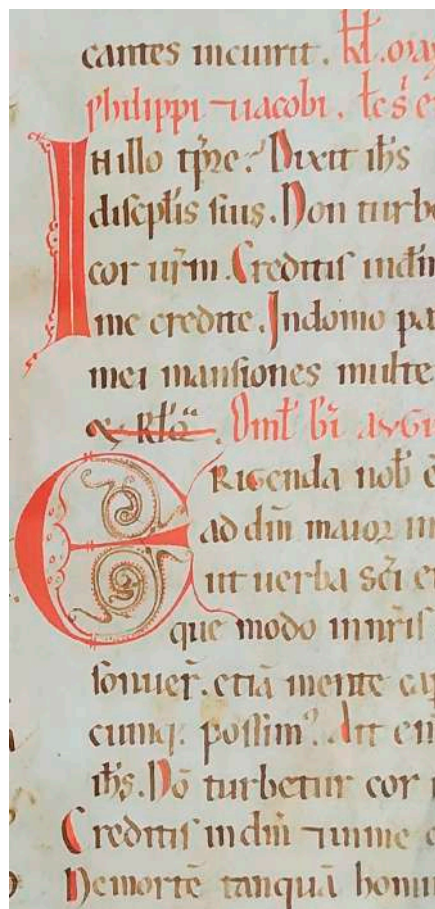 cantes incurrit. kł. may
philippi ⁊ iacobi. łc̄ s̄ e
IN illo tp̄re: Dixit ih̄s
discipl̄is suis. Non turbe
cor ur̄m. Creditis in dm̄
me credite. In domo pa
mei mansiones multe
Oml̄ bī augu
ERigenda nob̄ ē
ad dm̄ maior in
ut uerba sc̄i e
que modo in nr̄is
sonuer̄. etiā mente cap
cumq; possim᷒. Ait en
ih̄s. Nō turbetur cor
Creditis in dm̄ ⁊ in me
Ne mortē tanquā homin